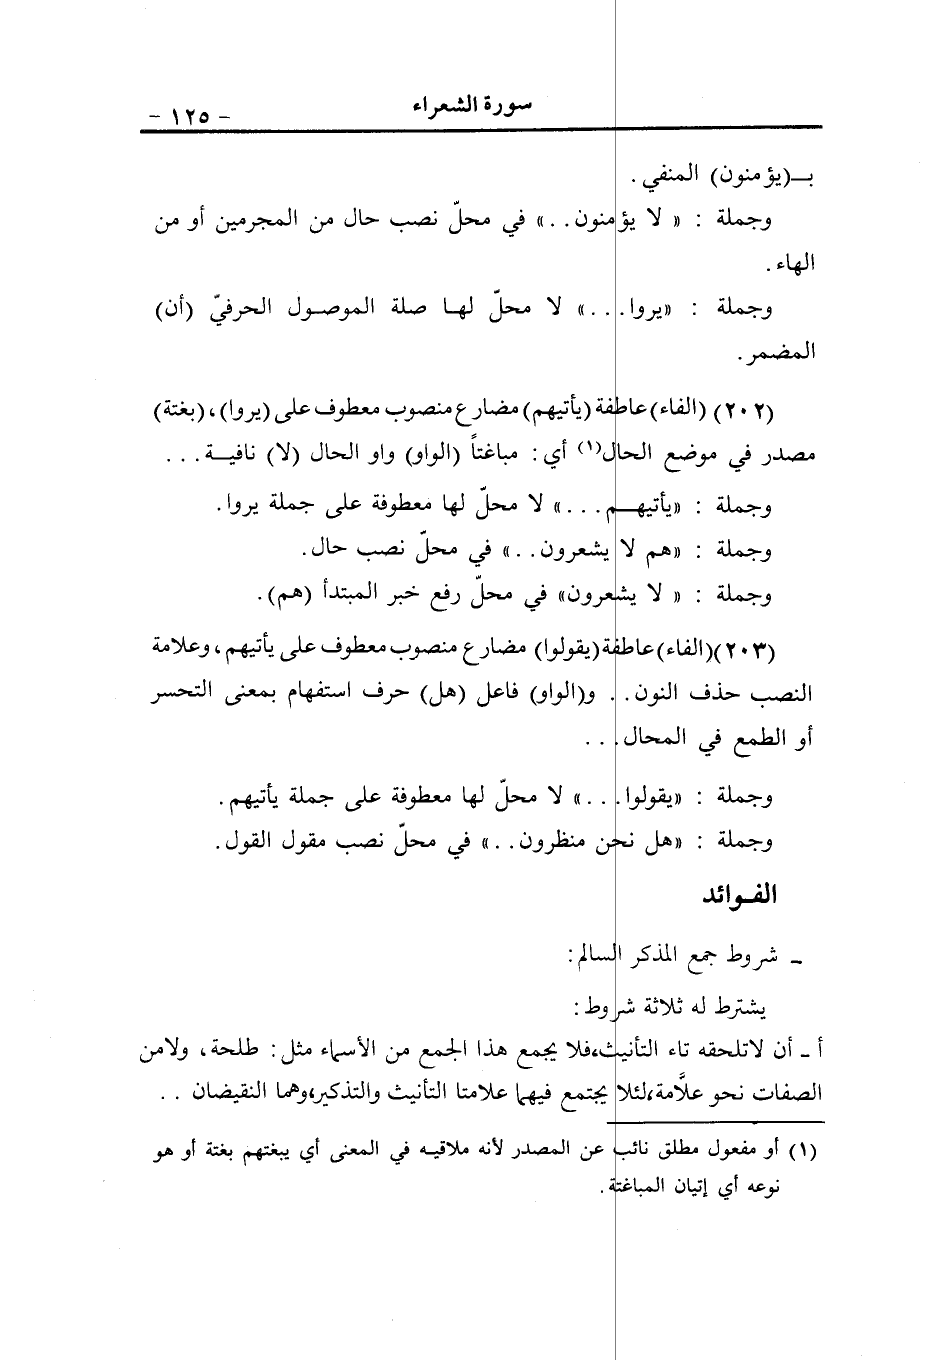 سورة الشعراء
- ١٢٥ -
بـ(يؤمنون) المنفي .
وجملة : « لا يؤمنون . . » في محلّ نصب حال من المجرمين أو من
الهاء .
وجملة : «يروا . . . » لا محلّ لها صلة الموصول الحرفيّ (أن)
المضمر .
(٢٠٢) (الفاء) عاطفة (يأتيهم) مضارع منصوب معطوف على (يروا) ، (بغتة)
مصدر في موضع الحال(١) أي : مباغتاً (الواو) واو الحال (لا) نافية . . .
وجملة : «يأتيهم . . . » لا محلّ لها معطوفة على جملة يروا .
وجملة : «هم لا يشعرون . . » في محلّ نصب حال .
وجملة : « لا يشعرون» في محلّ رفع خبر المبتدأ (هم) .
(٢٠٣) (الفاء) عاطفة (يقولوا) مضارع منصوب معطوف على يأتيهم ، وعلامة
النصب حذف النون . . و(الواو) فاعل (هل) حرف استفهام بمعنى التحسر
أو الطمع في المحال . . .
وجملة : «يقولوا . . . » لا محلّ لها معطوفة على جملة يأتيهم .
وجملة : «هل نحن منظرون . . » في محلّ نصب مقول القول .
الفوائد
ـ شروط جمع المذكر السالم :
يشترط له ثلاثة شروط :
أ ـ أن لاتلحقه تاء التأنيث، فلا يجمع هذا الجمع من الأسماء مثل : طلحة ، ولامن
الصفات نحو علاَّمة، لئلا يجتمع فيهما علامتا التأنيث والتذكير، وهما النقيضان . .
(١) أو مفعول مطلق نائب عن المصدر لأنه ملاقيه في المعنى أي يبغتهم بغتة أو هو
نوعه أي إتيان المباغتة .